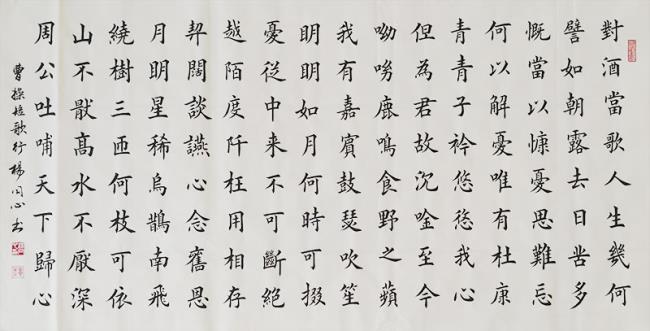 對酒當歌人生幾何
譬如朝露去日苦多
慨當以慷憂思難忘
何以解憂唯有杜康
青青子衿悠悠我心
但為君故沉唫至今
呦呦鹿鳴食野之蘋
我有嘉賓鼓瑟吹笙
明明如月何時可掇
憂從中来不可斷絕
越陌度阡枉用相存
契闊談讌心念舊恩
月明星稀烏鵲南飛
繞樹三匝何枝可依
山不猒高水不厭深
周公吐哺天下歸心
曹操短歌行楊同心书